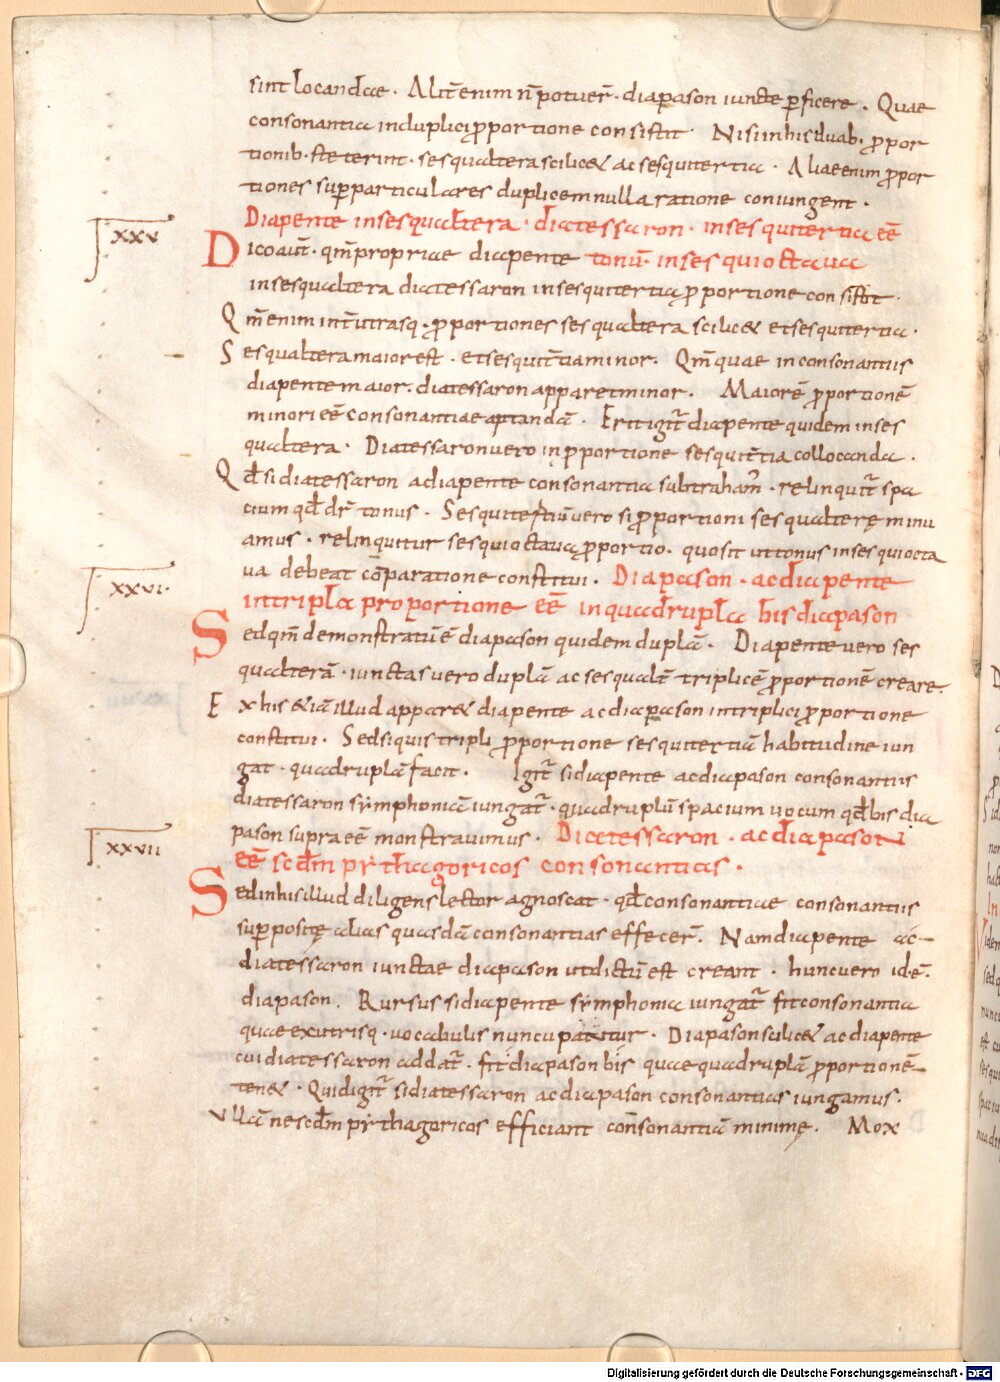 sint locandae. Alit̄ enim n̄ potuer̄. diapason iuncte ꝑficere. Quae
consonantia in duplici ꝓportione consistit. Nisi in his duab. ꝓpor
tionib. steterint. sesqualtera scilic& ac sesquitertia. Aliae enim ꝓpor
tiones suꝑparticulares duplicem nulla ratione coniungent.
Diapente in sesqualtera. diatessaron. in sesquitertia eē
xxv
Dico aut̄. qm̄ propriae diapente tonū. in sesquioctaua
in sesqualtera diatessaron in sesquitertia ꝓportione consistit.
Qm̄ enim int̄ utrasq. ꝓportiones sesqualtera scilic& et sesquitertia.
Sesqualtera maior est. et sesquit̄tia minor. Qm̄ quae in consonantiis
diapente maior. diatessaron apparet minor. Maiorē ꝓportionē
minori eē consonantiae aptandā. Erit igit̄ diapente quidem in ses
qualtera. Diatessaron uero in ꝓportione sesquit̄tia collocanda.
Qđ si diatessaron a diapente consonantia subtraham̄. relinquit̄ spa
tium qđ dr̄ tonus. Sesquitertiū uero si ꝓportioni sesqualterę minu
amus. relinquitur sesquioctaua ꝓportio. quo sit ut tonus in sesquiocta
ua debeat cōparatione constitui. Diapason. ac diapente
xxvi.
in tripla proportione eē in quadrupla bis diapason
Sed qm̄ demonstratū ē diapason quidem duplā. Diapente uero ses
qualterā. iunctas uero duplā ac sesqualt̄ triplicē ꝓportionē creare.
Ex his &iā illud appar& diapente ac diapason in triplici ꝓportione
constitui. Sed si quis tripli ꝓportione sesquitertiā habitudine iun
gat. quadruplā facit. Igit̄ si diapente ac diapason consonantiis
diatessaron symphoniā iungat̄. quadruplū spacium uocum qđ bis dia
pason supra eē monstrauimus. Diatessaron. ac diapason
xxvii
eē scđm pythagoricos consonantias.
Sed in his illud diligens lector agnoscat. qđ consonantiae consonantiis
suꝑpositę alias quasdā consonantias effecer̄. Nam diapente ac
diatessaron iunctae diapason ut dictū est creant. hunc uero idē.
diapason. Rursus si diapente symphonia iungat̄ fit consonantia
quae ex utrisq. uocabulis nuncupatur. Diapason scilic& ac diapente
cui diatessaron addat̄. fit diapason bis quae quadruplā ꝓportionē
ten&. Quid igit̄ si diatessaron ac diapason consonantias iungamus.
ullā ne scđm pythagoricos efficiant consonantiā minimę. Mox
Digitalisierung gefördert durch die Deutsche Forschungsgemeinschaft - DFG